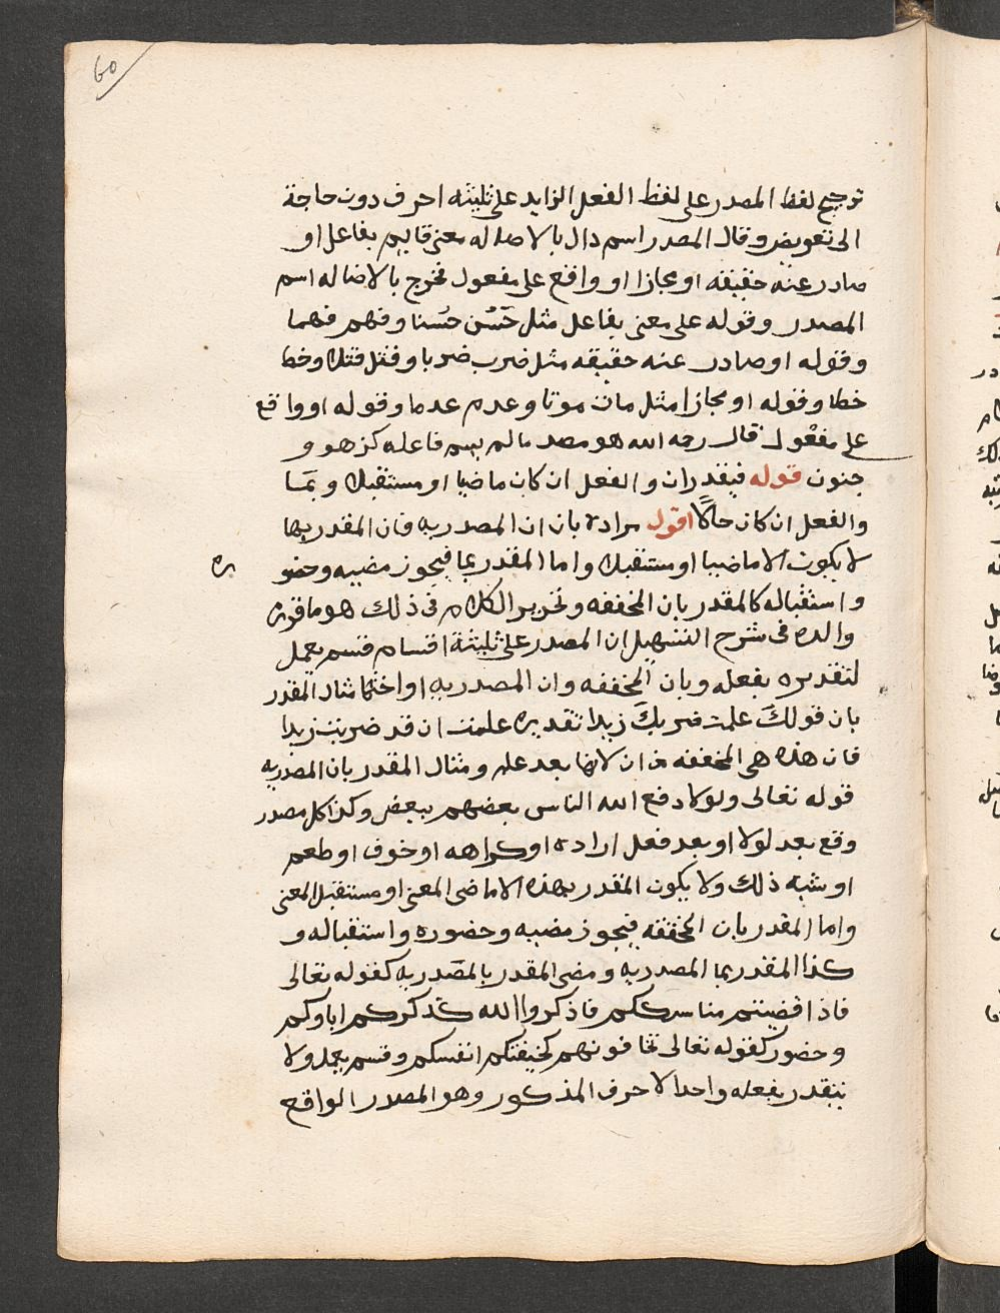 60
ترجيح لفظ المصدر على لفظ الفعل الزايد على ثليثة احرف دون حاجة
الى تعويض وقال المصدر اسم دال بالاصاله معنى قايم بفاعل او
صادر عنه حقيقه او مجازا او واقع على مفعول فخرج بالاصاله اسم
المصدر وقوله على معنى بفاعل مثل حَسُن حُسنا وفهم فهما
وقوله او صادر عنه حقيقه مثل ضرب ضربا وقتل قتلا وخط
خطا وقوله او مجازا مثل مات موتا وعدم عدما وقوله او واقع
على مفعول قال رحه الله هو مصدر ما لم يسم فاعله كزهو و
جنون قوله فيقدر ان والفعل ان كان ماضيا او مستقبلا وبمَا
والفعل ان كان حالًا اقول مراده بان ان المصدريه فان المقدر بها
لا يكون الا ماضيا او مستقبلا واما المقدر بما فيجوز مضيه وحضو
ره
واستقباله كالمقدر بان المخففه وتحرير الكلام فى ذلك هو ما قرره
والده فى شرح التسهيل ان المصدر على ثليثة اقسام قسم يعمل
لتقديره بفعله وبان المخففه وان المصدريه او اختها مثال المقدر
بان قولك علمت ضربك زيدا تقديره علمت ان قد ضربت زيدا
فان هذه هى المخففه من ان لانها بعد علم ومثال المقدر بان المصدريه
قوله تعالى ولولا دفع الله الناس بعضهم ببعض وكذا كل مصدر
وقع بعد لولا او بعد فعل اراده او كراهه او خوف او طعم
او شبه ذلك ولا يكون المقدر بهذه الا ماضى المعنى او مستقبل المعنى
واما المقدر بان المخففه فيجوز مضيه وحضوره واستقباله و
كذا المقدر بما المصدريه ومضى المقدر بالمصدريه كقوله تعالى
فاذا قضيتم مناسككم فاذكروا الله كذكركم اباوكم
وحضور كقوله تعالى تخافونهم كخيفتكم انفسكم وقسم يعمل ولا
يتقدر بفعله واحدا لاحرف المذكور وهو المصدر الواقع